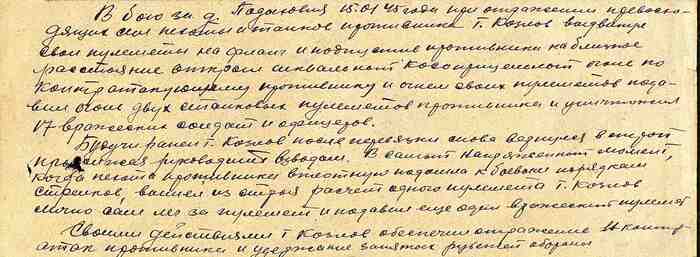 В бою за д. 15.01.45 года при отражении превосхо-
дящих сил пехоты и танков противника т. Козлов выдвинул
свои пулеметы на фланг и подпустив противника на близкое
расстояние открыл шквальный косоприцельный огонь по
контратакующему противнику и огнем своих пулеметов пода-
вил огонь двух станковых пулеметов противника и уничтожил
17 вражеских солдат и офицеров.
Будучи ранен т. Козлов после перевязки снова вернулся в строй
продолжая руководить взводом. В самый напряженный момент,
когда пехота противника вплотную подошла к боевым порядкам
стрелков, вышел из строя расчет одного пулемета т. Козлов
лично сам лег за пулемет и подавил еще один вражеский пулемет
Своими действиями т Козлов обеспечил отражение контр-
атак противника и удержание занятых рубежей обороны